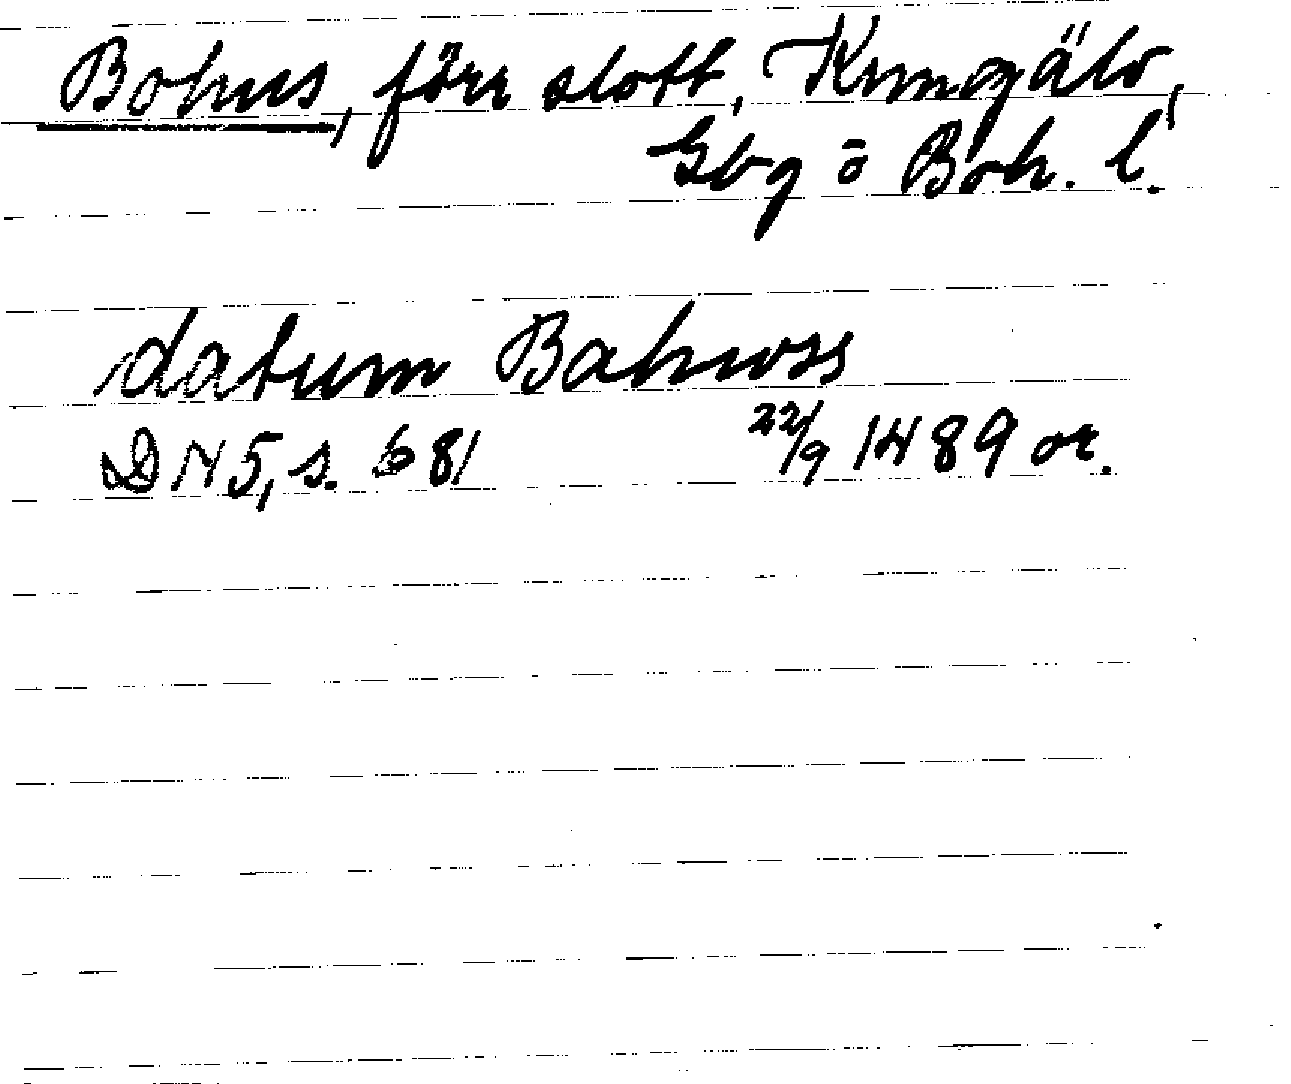 Bohus, förr slott, Kungälv,
Gbg o Boh. l.
datum Bahwss
DN 5, s. 681 22/9 1489 or.